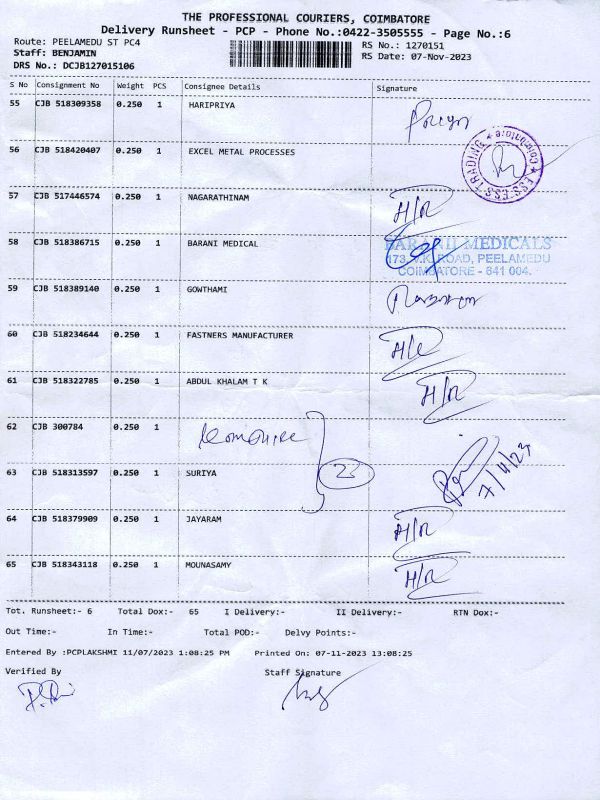 THE PROFESSIONAL COURIERS, COIMBATORE
Delivery Runsheet - PCP - Phone No.:0422-3505555 - Page No.:6
Route: PEELAMEDU ST PC4
RS No.: 1270151
Staff: BENJAMIN
RS Date: 07-Nov-2023
DRS No.: DCJB127015106
S No Consignment No Weight PCS Consignee Details Signature
55 CJB 518309358 0.250 1 HARIPRIYA
56 CJB 518420407 0.250 1 EXCEL METAL PROCESSES
ESS-ESS TRADING * Coimbatore *
57 CJB 517446574 0.250 1 NAGARATHINAM H/R
58 CJB 518386715 0.250 1 BARANI MEDICAL
BARANI MEDICALS
173, V.K. ROAD, PEELAMEDU
COIMBATORE - 641 004.
59 CJB 518389140 0.250 1 GOWTHAMI
60 CJB 518234644 0.250 1 FASTNERS MANUFACTURER H/R
61 CJB 518322785 0.250 1 ABDUL KHALAM T K H/R
62 CJB 300784 0.250 1
63 CJB 518313597 0.250 1 SURIYA 23 7/11/23
64 CJB 518379909 0.250 1 JAYARAM H/R
65 CJB 518343118 0.250 1 MOUNASAMY H/R
Tot. Runsheet:- 6 Total Dox:- 65 I Delivery:- II Delivery:- RTN Dox:-
Out Time:- In Time:- Total POD:- Delvy Points:-
Entered By :PCPLAKSHMI 11/07/2023 1:08:25 PM Printed On: 07-11-2023 13:08:25
Verified By Staff Signature